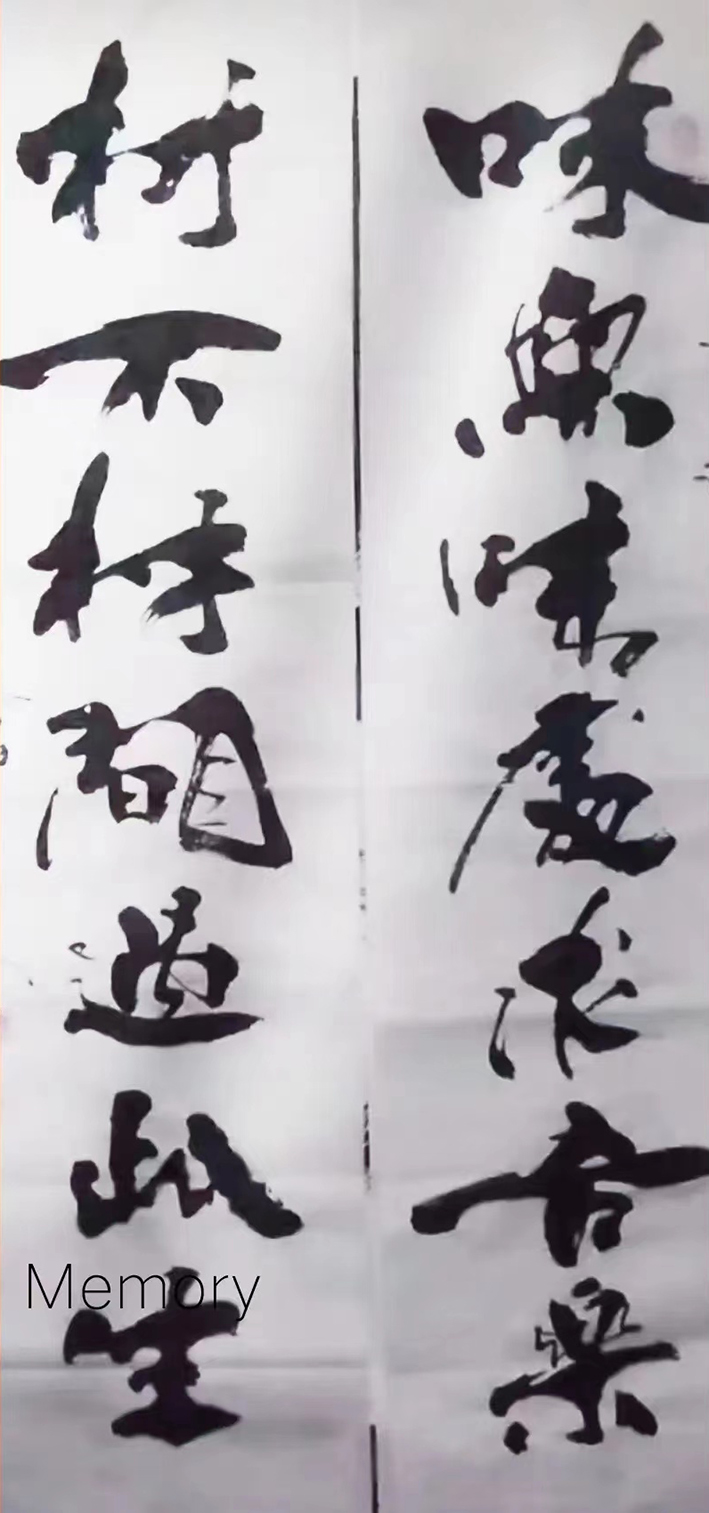 味無味處求吾樂
材不材間過此生
Memory